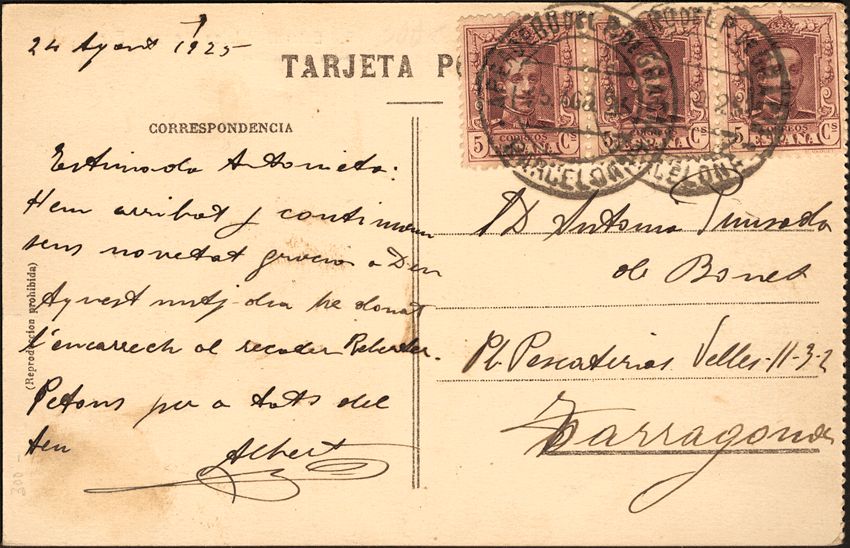 24 Agost 1925
TARJETA PO
CORRESPONDENCIA
Estimada Antonieta:
Hem arribat y continuem
sens novetat gracias a Deu
Aquest mitj dia he donat
l'encarrech al recader
Petons per a tots del
teu Albert
(Reproducion prohibida)
300-
5 CORREOS ESPAÑA Cs
5 CORREOS ESPAÑA Cs
5 CORREOS ESPAÑA Cs
BARCELONA
BARCELONA
D Antonia
de Bonet
Pl. Pescaterias Velles-11-3-2
Tarragona